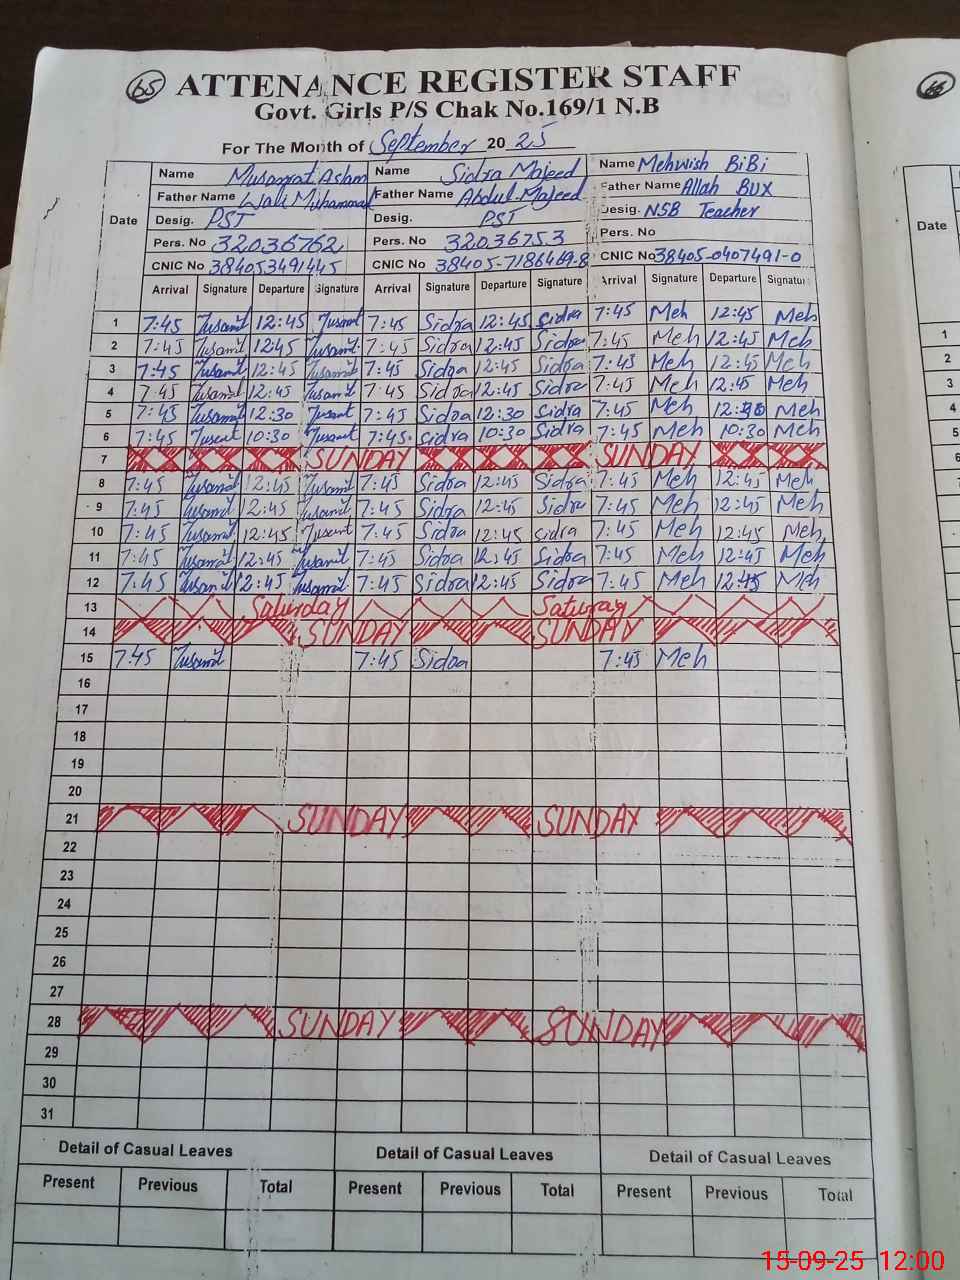 65 ATTENANCE REGISTER STAFF
Govt. Girls P/S Chak No.169/1 N.B
For The Month of September 2025
Date Name Musarrat Aslam Name Sidra Majeed Name Mehwish BiBi
Father Name Wali Muhammad Father Name Abdul Majeed Father Name Allah BUX
Desig. PST Desig. PST Desig. NSB Teacher
Pers. No 32036762 Pers. No 32036753 Pers. No
CNIC No 384053491445 CNIC No 38405-7186469-8 CNIC No 38405-0407491-0
Arrival Signature Departure Signature Arrival Signature Departure Signature Arrival Signature Departure Signature
1 7:45 12:45 7:45 Sidra 12:45 Sidra 7:45 Meh 12:45 Meh
2 7:45 12:45 7:45 Sidra 12:45 Sidra 7:45 Meh 12:45 Meh
3 7:45 12:45 7:45 Sidra 12:45 Sidra 7:45 Meh 12:45 Meh
4 7:45 12:45 7:45 Sidra 12:45 Sidra 7:45 Meh 12:45 Meh
5 7:45 12:30 7:45 Sidra 12:30 Sidra 7:45 Meh 12:30 Meh
6 7:45 10:30 7:45 Sidra 10:30 Sidra 7:45 Meh 10:30 Meh
7 SUNDAY SUNDAY
8 7:45 12:45 7:45 Sidra 12:45 Sidra 7:45 Meh 12:45 Meh
9 7:45 12:45 7:45 Sidra 12:45 Sidra 7:45 Meh 12:45 Meh
10 7:45 12:45 7:45 Sidra 12:45 sidra 7:45 Meh 12:45 Meh
11 7:45 12:45 7:45 Sidra 12:45 Sidra 7:45 Meh 12:45 Meh
12 7:45 12:45 7:45 Sidra 12:45 Sidra 7:45 Meh 12:45 Meh
13 Saturday Saturay
14 SUNDAY SUNDAY
15 7:45 7:45 Sidra 7:45 Meh
16
17
18
19
20
21 SUNDAY SUNDAY
22
23
24
25
26
27
28 SUNDAY SUNDAY
29
30
31
Detail of Casual Leaves Detail of Casual Leaves Detail of Casual Leaves
Present Previous Total Present Previous Total Present Previous Total
66
Date
1
2
3
4
5
6
15-09-25 12:00